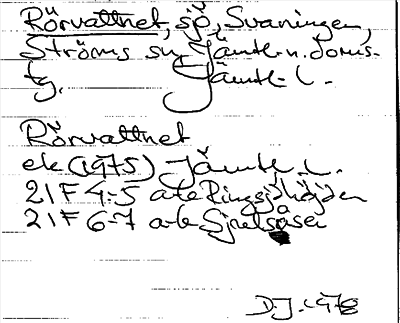 Rörvattnet, sjö, Svaningen,
Ströms sn, Jämtl. n. doms-
tg. Jämtl. l.
Rörvattnet
ek (1975) Jämtl. l.
21F 4-5 a-te Ringsjöhöjden
21F 6-7 a-te
D.J. 1978